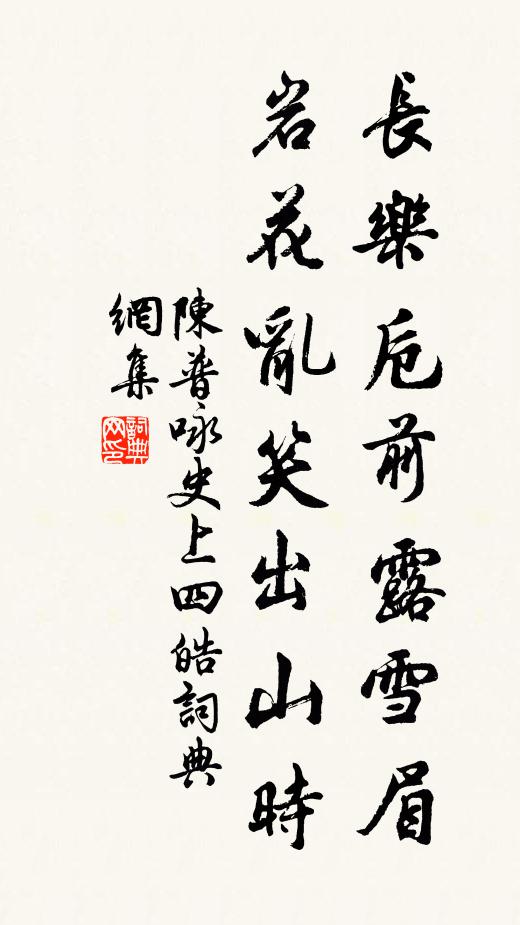 長樂卮前露雪眉
岩花亂笑出山時
陳普咏史上四皓詞典
網集
詞典網印